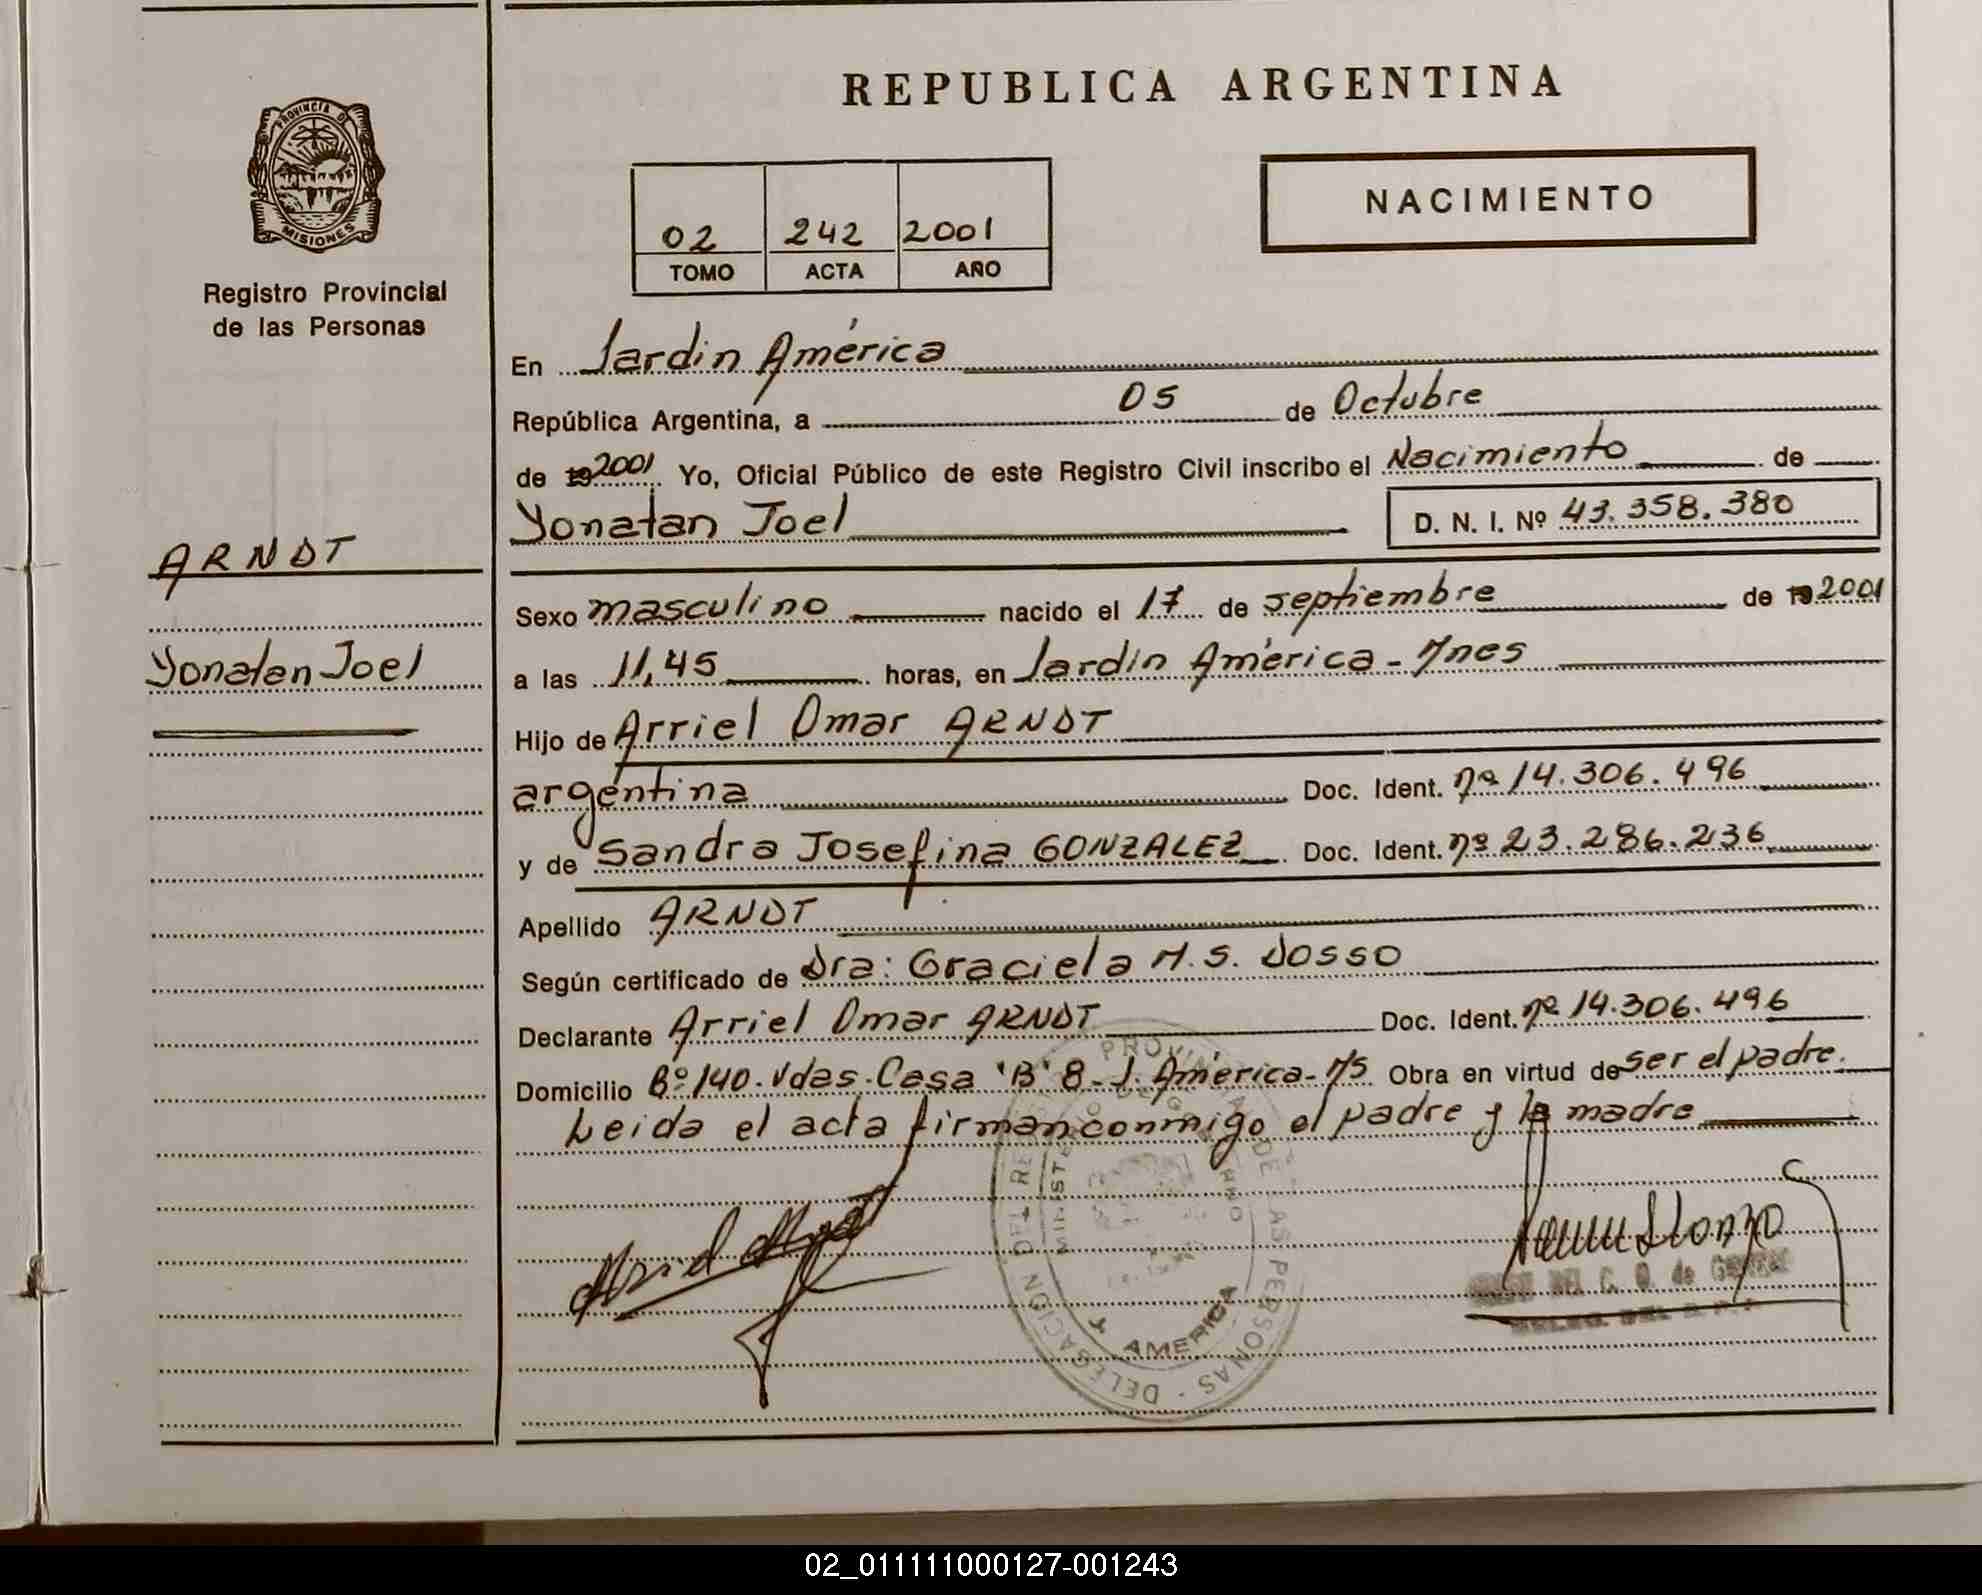 REPUBLICA ARGENTINA
PROVINCIA DE MISIONES
NACIMIENTO
02 242 2001
TOMO ACTA AÑO
Registro Provincial
de las Personas
ARNDT
Yonatan Joel
En Jardin América
República Argentina, a 05 de Octubre
de 192001 Yo, Oficial Público de este Registro Civil inscribo el Nacimiento de
Yonatan Joel D. N. I. Nº 43.358.380
Sexo masculino nacido el 17 de septiembre de 192001
a las 11,45 horas, en Jardin América - Mnes
Hijo de Arriel Omar ARNDT
argentina Doc. Ident. nº 14.306.496
y de Sandra Josefina GONZALEZ Doc. Ident. nº 23.286.236
Apellido ARNDT
Según certificado de Dra: Graciela M.S. DOSSO
Declarante Arriel Omar ARNDT Doc. Ident. nº 14.306.496
Domicilio Bº 140. Vdas. Casa "B" 8 - J. América - Ms Obra en virtud de ser el padre.
Leida el acta firman conmigo el padre y la madre
DELEGACION DEL PROVINCIAL DE LAS PERSONAS
AMERICA
02_011111000127-001243